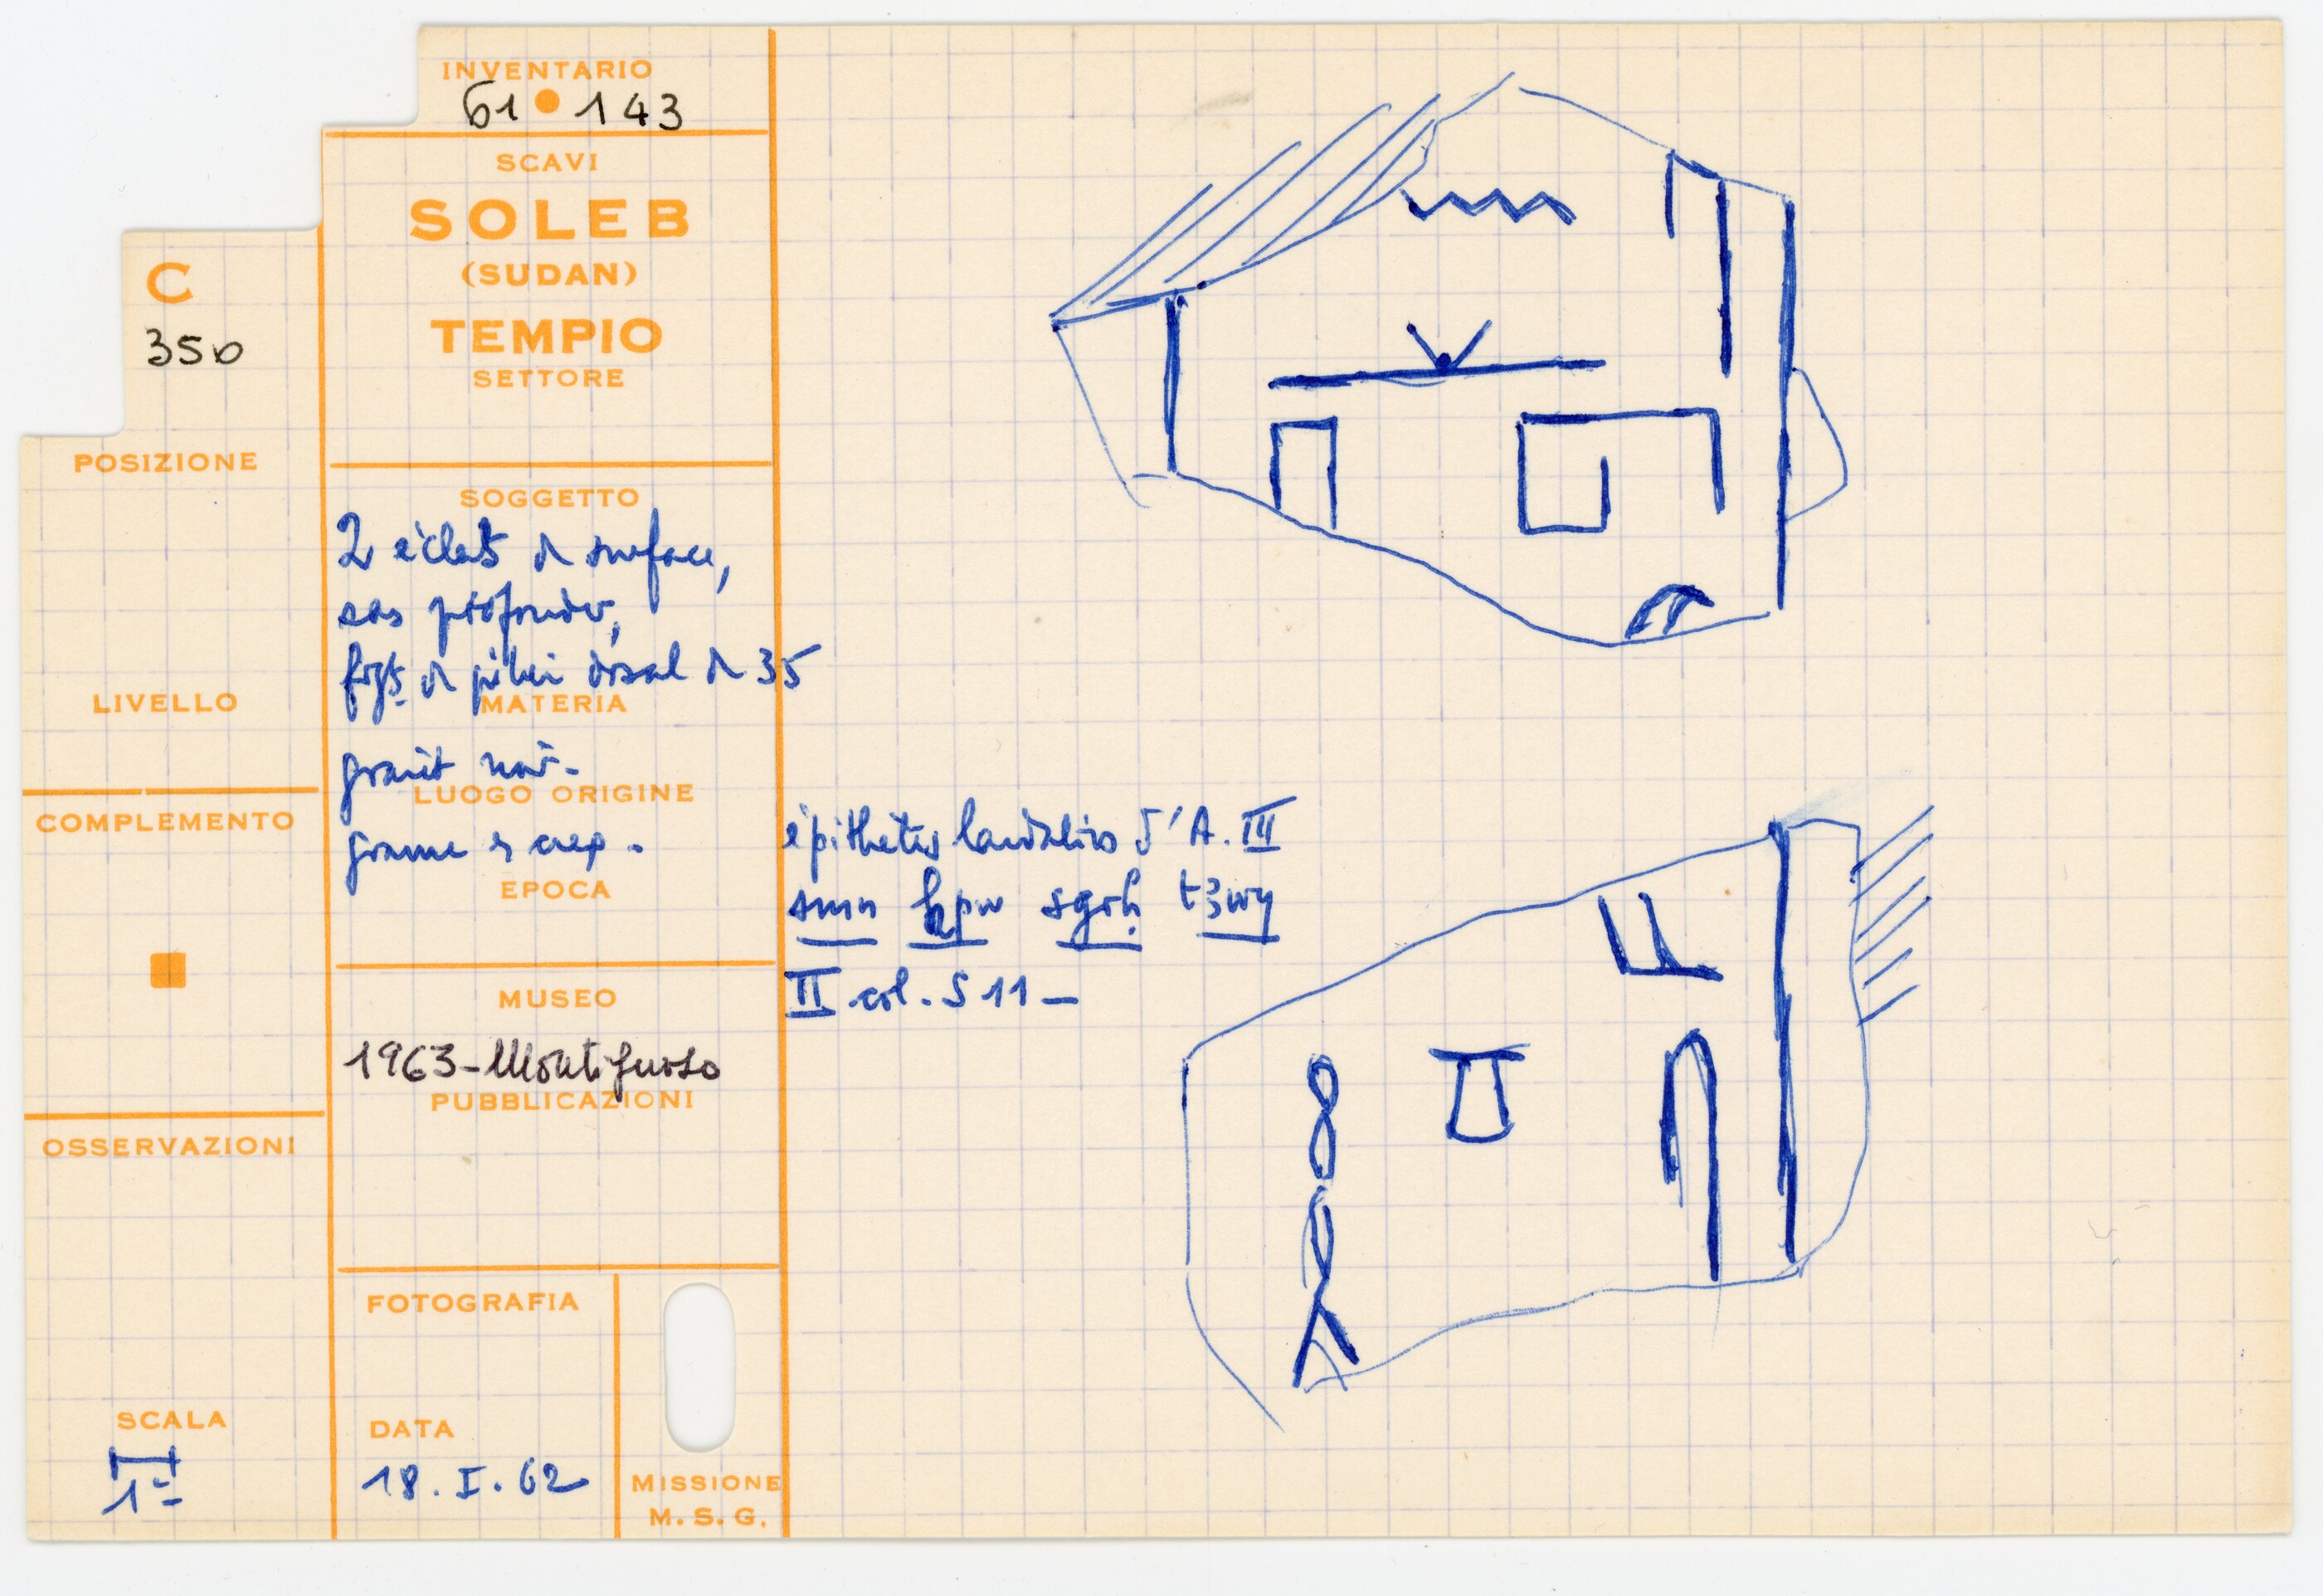 INVENTARIO
61 • 143
SCAVI
SOLEB
(SUDAN)
TEMPIO
SETTORE
C
350
POSIZIONE
LIVELLO
COMPLEMENTO
OSSERVAZIONI
SCALA
1
SOGGETTO
2 éclats de surface,
profondeur,
fgts de pilier dorsal de 35
MATERIA
granit noir.
LUOGO ORIGINE
EPOCA
épithètes laudatives d'A. III
smn hpw sgrḥ t3wy
II col. S 11 —
MUSEO
1963 - Montefuoso
PUBBLICAZIONI
FOTOGRAFIA
DATA
18. I. 62
MISSIONE
M. S. G.